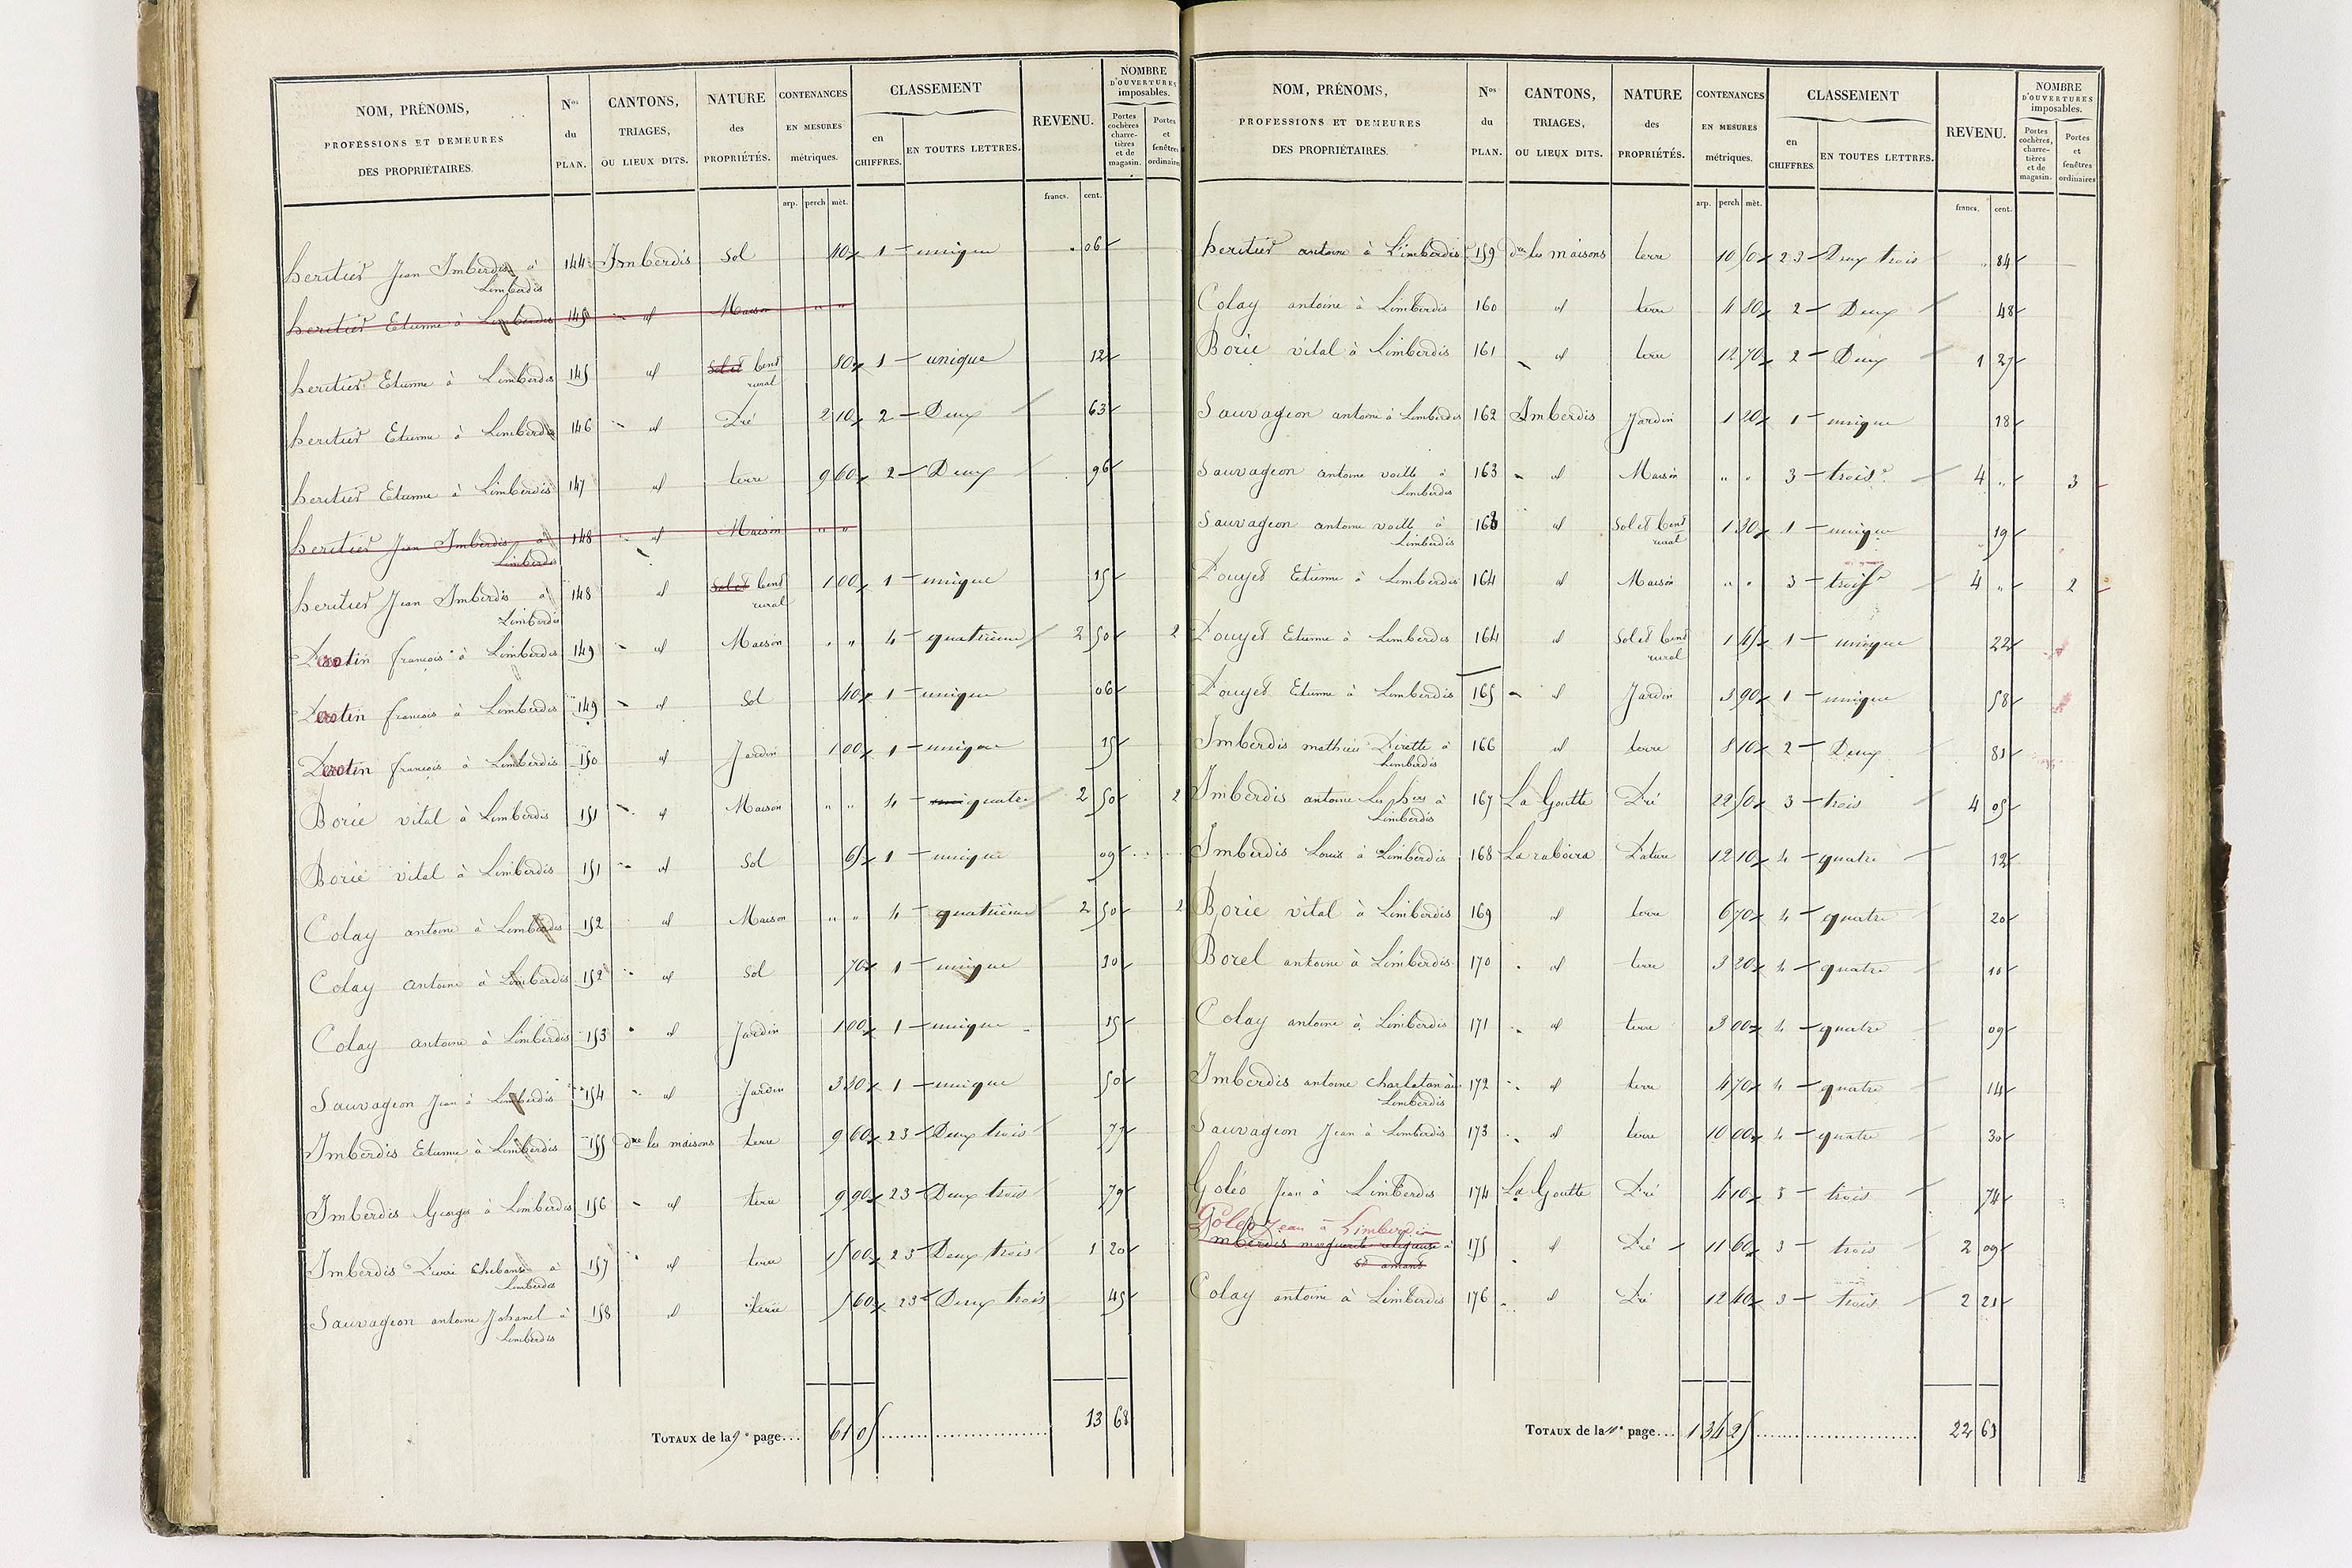 NOM, PRÉNOMS, PROFESSIONS ET DEMEURES DES PROPRIÉTAIRES. Nos du PLAN. CANTONS, TRIAGES, OU LIEUX DITS. NATURE des PROPRIÉTÉS. CONTENANCES EN MESURES métriques. CLASSEMENT en CHIFFRES. EN TOUTES LETTRES. REVENU. NOMBRE D'OUVERTURES imposables. Portes cochères, charretières et de magasin. Portes et fenêtres ordinaires
arp. perch mèt. francs. cent.
heritier Jean Imberdis à Limberdis 144 Imberdis Sol 40 1 unique 06
heritier Etienne à Limberdis 145 id Maison " "
heritier Etienne à Limberdis 145 id Sol et bent rural 80 1 unique 12
heritier Etienne à Limberdis 146 id Pré 2 10 2 Deux 63
heritier Etienne à Limberdis 147 id terre 9 60 2 Deux 96
heritier Jean Imberdis à Limberdis 148 id Maison " "
heritier Jean Imberdis à Limberdis 148 id Sol et bent rural 1 00 1 unique 15
françois à Limberdis 149 id Maison " " 4 quatrième 2 50 2
françois à Limberdis 149 id Sol 40 1 unique 06
françois à Limberdis 150 id Jardin 1 00 1 unique 15
Borie vital à Limberdis 151 id Maison " " 4 quatre 2 50 2
Borie vital à Limberdis 151 id Sol 65 1 unique 09
Colay antoine à Limberdis 152 id Maison " " 4 quatrième 2 50 2
Colay antoine à Limberdis 152 id Sol 70 1 unique 10
Colay antoine à Limberdis 153 id Jardin 1 00 1 unique 15
Sauvagion Jean à Limberdis 154 id Jardin 3 30 1 unique 50
Imberdis Etienne à Limberdis 155 dre les maisons terre 9 60 2 3 Deux trois 77
Imberdis Georges à Limberdis 156 id terre 9 90 2 3 Deux trois 79
Imberdis Pierre à Limberdis 157 id terre 15 00 2 3 Deux trois 1 20
Sauvagion antoine à Limberdis 158 id terre 5 60 2 3 Deux trois 45
TOTAUX de la 9e page... 61 05 13 68
NOM, PRÉNOMS, PROFESSIONS ET DEMEURES DES PROPRIÉTAIRES. Nos du PLAN. CANTONS, TRIAGES, OU LIEUX DITS. NATURE des PROPRIÉTÉS. CONTENANCES EN MESURES métriques. CLASSEMENT en CHIFFRES. EN TOUTES LETTRES. REVENU. NOMBRE D'OUVERTURES imposables. Portes cochères, charretières et de magasin. Portes et fenêtres ordinaires
arp. perch mèt. francs. cent.
heritier antoine à Limberdis 159 dre les maisons terre 10 50 2 3 Deux trois 84
Colay antoine à Limberdis 160 id terre 4 80 2 Deux 48
Borie vital à Limberdis 161 id terre 12 70 2 Deux 1 27
Sauvagion antoine à Limberdis 162 Imberdis Jardin 1 20 1 unique 18
Sauvagion antoine à Limberdis 163 id Maison " " 3 trois 4 " 3
Sauvagion antoine à Limberdis 163 id Sol et bent rural 1 30 1 unique 19
Pouyet Etienne à Limberdis 164 id Maison " " 3 trois 4 " 2
Pouyet Etienne à Limberdis 164 id Sol et bent rural 1 45 1 unique 22
Pouyet Etienne à Limberdis 165 id Jardin 3 90 1 unique 58
Imberdis mathieu à Limberdis 166 id terre 8 10 2 Deux 81
Imberdis antoine les hers à Limberdis 167 La Goutte Pré 22 50 3 trois 4 05
Imberdis Louis à Limberdis 168 La raboira Pature 12 10 4 quatre 12
Borie vital à Limberdis 169 id terre 6 70 4 quatre 20
Borel antoine à Limberdis 170 id terre 3 20 4 quatre 10
Colay antoine à Limberdis 171 id terre 3 00 4 quatre 09
Imberdis antoine charlatan à Limberdis 172 id terre 4 70 4 quatre 14
Sauvagion Jean à Limberdis 173 id terre 10 00 4 quatre 30
Goléo Jean à Limberdis 174 La Goutte Pré 4 10 3 trois 74
Goléo Jean à Limberdis
Imberdis marguerite religieuse à st amant 175 id Pré 11 60 3 trois 2 09
Colay antoine à Limberdis 176 id Pré 12 40 3 trois 2 23
TOTAUX de la 10e page.... 1 34 25 22 63